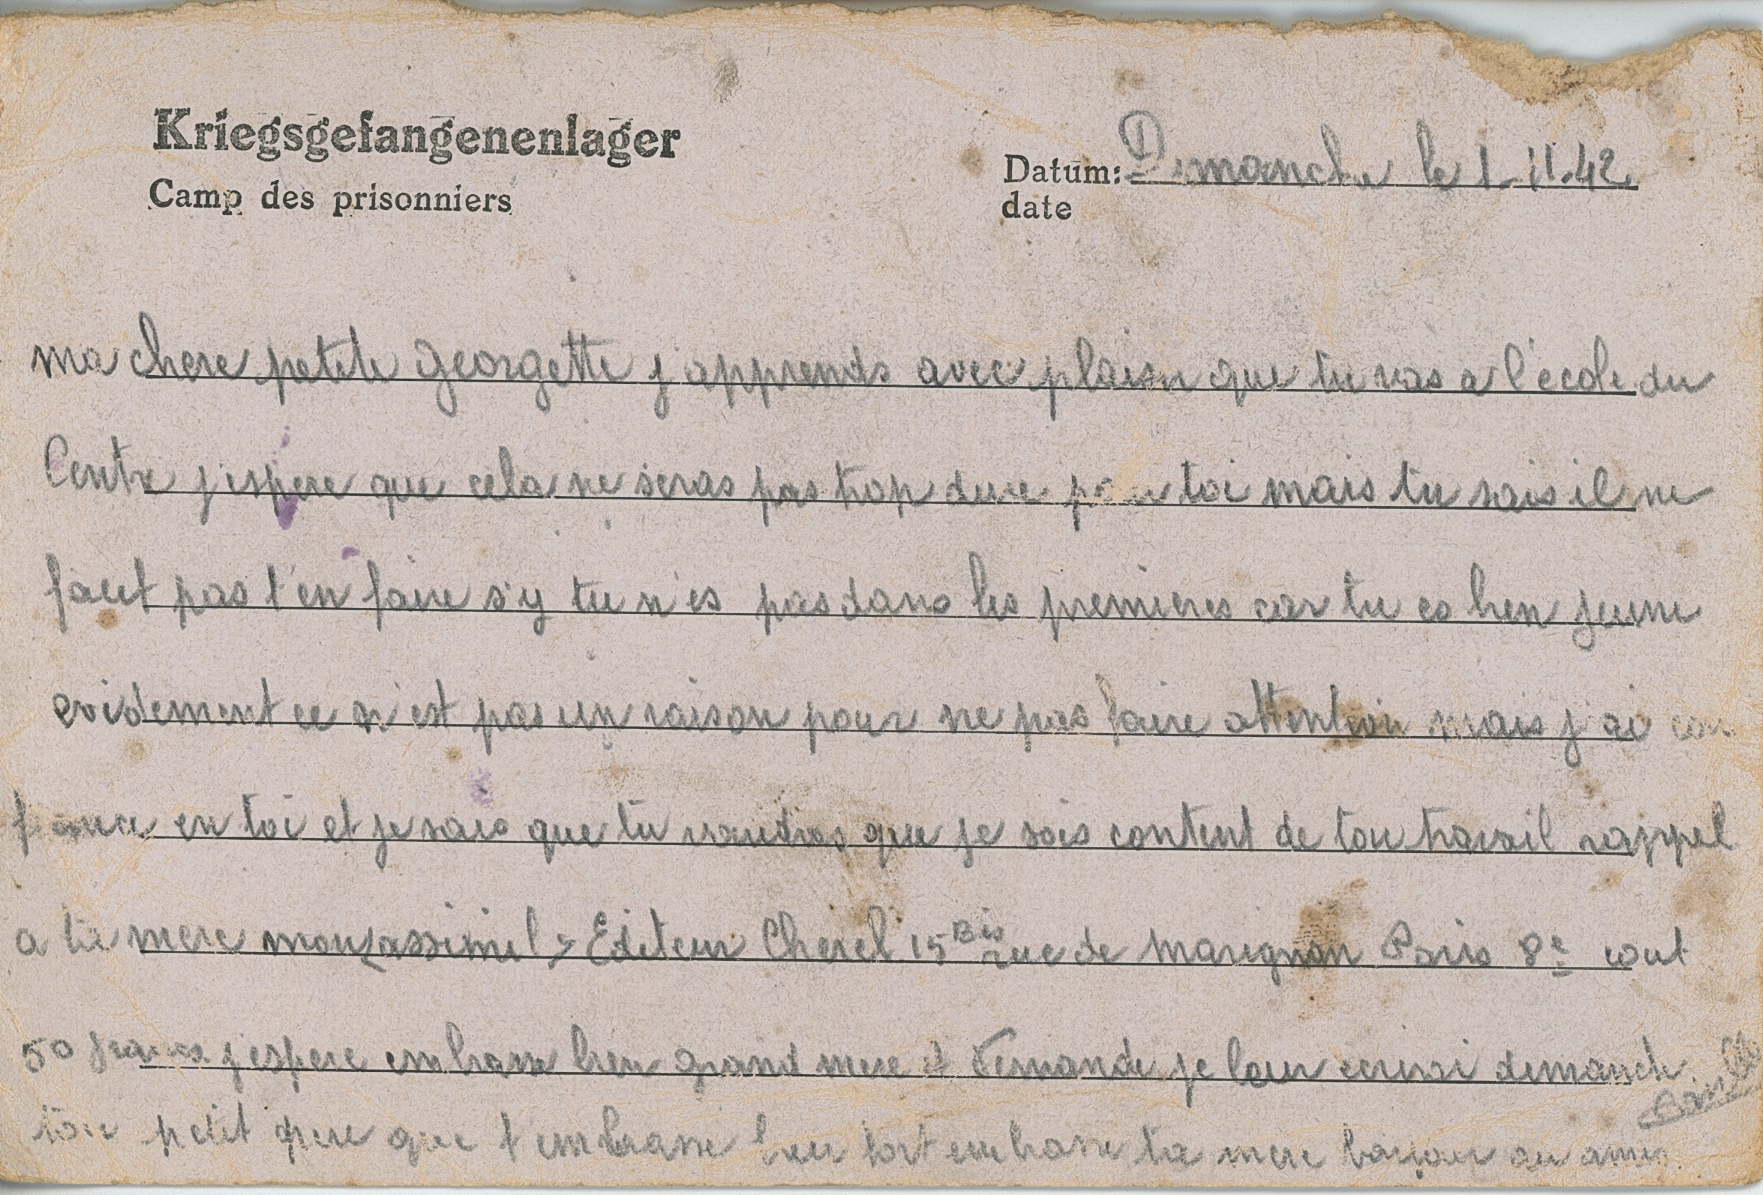 Kriegsgefangenenlager
Camp des prisonniers
Datum: Dimanche le 1-11.42
date
ma chere petite georgette j apprends avec plaisir que tu vas a l'école du
Centre j'espere que cela ne seras pas trop dure pour toi mais tu sais il ne
faut pas t'en faire s'y tu n'es pas dans les premieres car tu es bien jeune
evidement ce n'est pas un raison pour ne pas faire attention mais j'ai con
fiance en toi et je sais que tu voudras que je sois content de ton travail rappel
a ta mere mon assimil Editeur Cherel 15 Bis rue de Marignan Paris 8e cout
50 francs j'espere embrasse bien grand mere et Fernande je leur ecrirai dimanche
ton petit pere que t'embrasse bien fort embrasse ta mere bonjour au amis